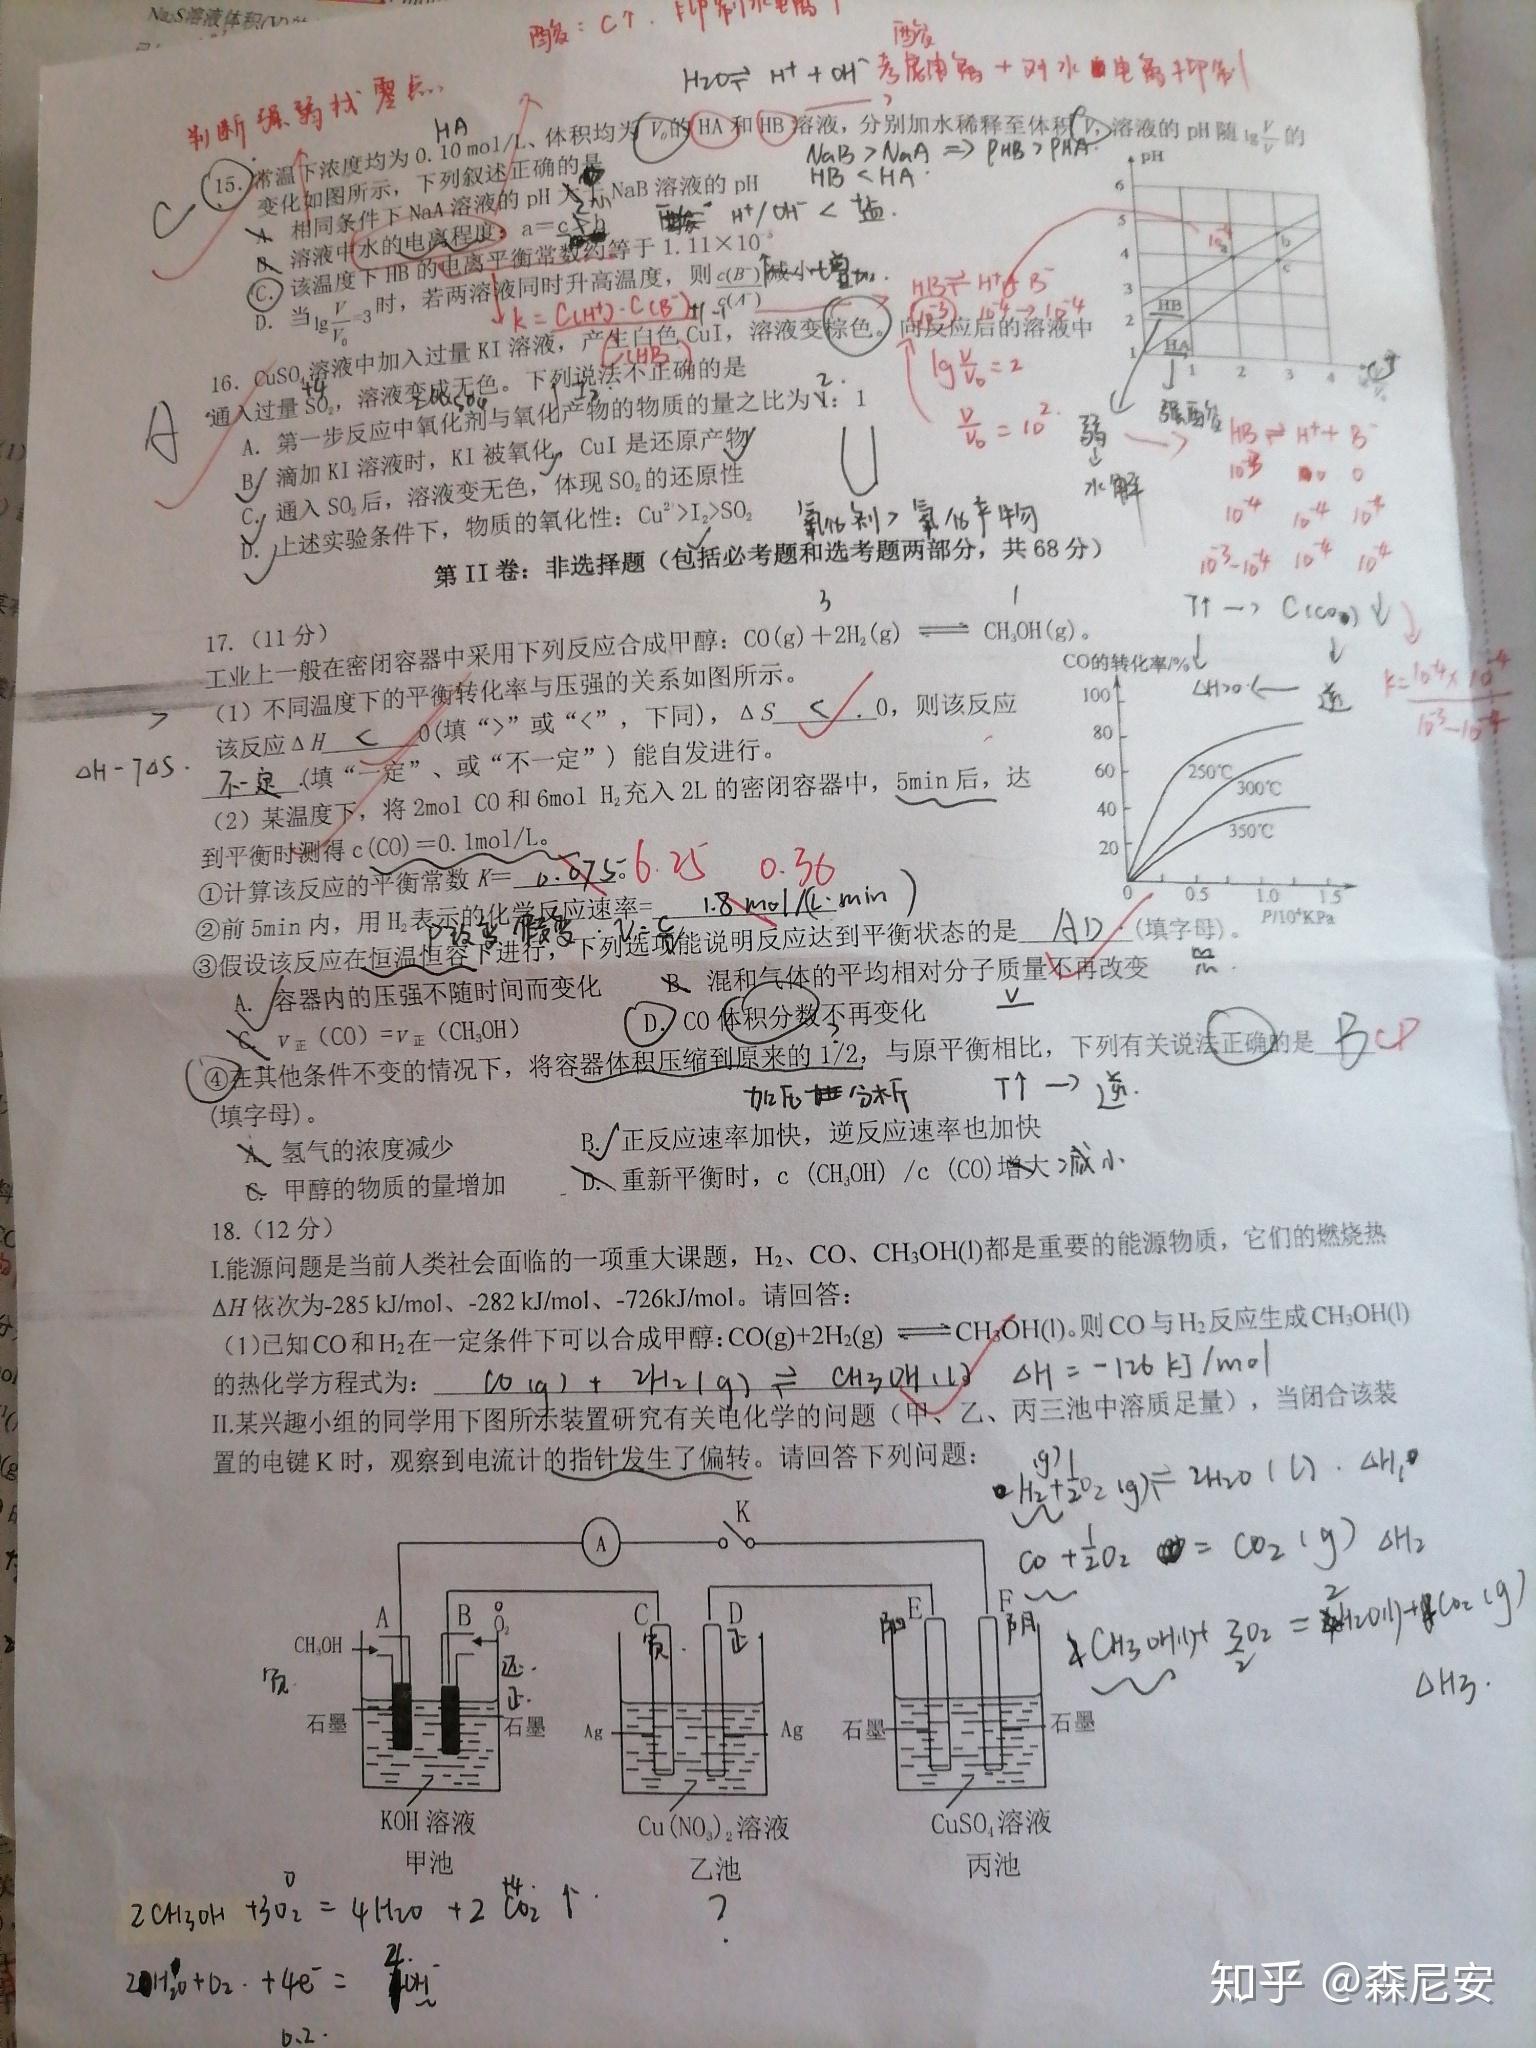 Na₂S溶液体积(V)
酸: C↑. 抑制水电离↑
酸
H₂O⇌ H⁺ + OH⁻ 考虑电离 + 对水电离抑制
判断强弱找零点.
HA
15. 常温下浓度均为 0.10 mol/L、体积均为 V₀的 HA 和 HB 溶液，分别加水稀释至体积 V, 溶液的 pH 随 lg V/V₀ 的
变化如图所示，下列叙述正确的是
NaB > NaA => PHB > PHA.
HB < HA.
C
A. 相同条件下 NaA 溶液的 pH 大于 NaB 溶液的 pH
B. 溶液中水的电离程度：a=c>b
H⁺/OH⁻ < 盐.
C. 该温度下 HB 的电离平衡常数约等于 1.11×10⁻⁵
D. 当 lg V/V₀=3 时，若两溶液同时升高温度，则 c(B⁻)/c(A⁻) 减小 增加.
k = C(H⁺)·C(B⁻)
C(HB)
HB⇌ H⁺+ B⁻
10⁻³ 10⁻⁴ → 10⁻⁴
lg V/V₀ = 2
V/V₀ = 10².
pH
6
5
4
3
2
1
HB
HA
a
b
c
1 2 3 4
弱
水解
强酸
HB ⇌ H⁺ + B⁻
10⁻³ 0 0
10⁻⁴ 10⁻⁴ 10⁻⁴
10⁻³-10⁻⁴ 10⁻⁴ 10⁻⁴
k= 10⁻⁴×10⁻⁴
10⁻³-10⁻⁴
16. CuSO₄溶液中加入过量 KI 溶液，产生白色 CuI，溶液变棕色。向反应后的溶液中
通入过量 SO₂，溶液变成无色。下列说法不正确的是
A
A. 第一步反应中氧化剂与氧化产物的物质的量之比为 1：1
2.
B. 滴加 KI 溶液时，KI 被氧化，CuI 是还原产物
C. 通入 SO₂后，溶液变无色，体现 SO₂的还原性
D. 上述实验条件下，物质的氧化性：Cu²⁺>I₂>SO₂
氧化剂 > 氧化产物
第 II 卷：非选择题（包括必考题和选考题两部分，共 68 分）
17.（11 分）
3 1
工业上一般在密闭容器中采用下列反应合成甲醇：CO(g)＋2H₂(g) ⇌ CH₃OH(g)。
（1）不同温度下的平衡转化率与压强的关系如图所示。
该反应ΔH < 0(填“>”或“<”，下同)，ΔS < 0，则该反应
不一定 (填“一定”、或“不一定”）能自发进行。
>
ΔH-TΔS.
T↑ → C(CO) ↓
ΔH>0. ← 逆
CO的转化率/%
100
80
60
40
20
0
250℃
300℃
350℃
0.5 1.0 1.5
P/10⁴KPa
（2）某温度下，将 2mol CO 和 6mol H₂充入 2L 的密闭容器中，5min 后，达
到平衡时测得 c(CO)＝0.1mol/L。
①计算该反应的平衡常数 K= 0.075 。 6.25 0.36
②前 5min 内，用 H₂表示的化学反应速率= 1.8 mol/(L·min)
③假设该反应在恒温恒容下进行，下列选项能说明反应达到平衡状态的是 AD (填字母)。
A. 容器内的压强不随时间而变化 B. 混和气体的平均相对分子质量不再改变
C. v正（CO）=v正（CH₃OH） D. CO 体积分数不再变化
④在其他条件不变的情况下，将容器体积压缩到原来的 1/2，与原平衡相比，下列有关说法正确的是 B CD
(填字母)。
加压 分析 T↑ → 逆.
A. 氢气的浓度减少 B. 正反应速率加快，逆反应速率也加快
C. 甲醇的物质的量增加 D. 重新平衡时，c（CH₃OH）/c（CO)增大 减小
18.（12 分）
I.能源问题是当前人类社会面临的一项重大课题，H₂、CO、CH₃OH(l)都是重要的能源物质，它们的燃烧热
ΔH 依次为-285 kJ/mol、-282 kJ/mol、-726kJ/mol。请回答：
（1)已知 CO 和 H₂在一定条件下可以合成甲醇：CO(g)+2H₂(g) ⇌ CH₃OH(l)。则 CO 与 H₂反应生成 CH₃OH(l)
的热化学方程式为： CO(g) + 2H₂(g) ⇌ CH₃OH(l) ΔH = -126 kJ/mol
II.某兴趣小组的同学用下图所示装置研究有关电化学的问题（甲、乙、丙三池中溶质足量），当闭合该装
置的电键 K 时，观察到电流计的指针发生了偏转。请回答下列问题：
H₂+½O₂(g)⇌ 2H₂O(l). ΔH₁
CO +½O₂ = CO₂(g) ΔH₂
CH₃OH(l)+ 3/2O₂ = 2H₂O(l)+CO₂(g)
ΔH₃.
A K
A B C D E F
CH₃OH O₂
负. 还. 正. 负. 正 阳 阴
石墨 石墨 Ag Ag 石墨 石墨
KOH 溶液 Cu(NO₃)₂溶液 CuSO₄溶液
甲池 乙池 丙池
0 +4
2CH₃OH +3O₂ = 4H₂O + 2CO₂ ↑
?
2H₂O+O₂ +4e⁻ = 4OH⁻
0.2.
知乎 @森尼安